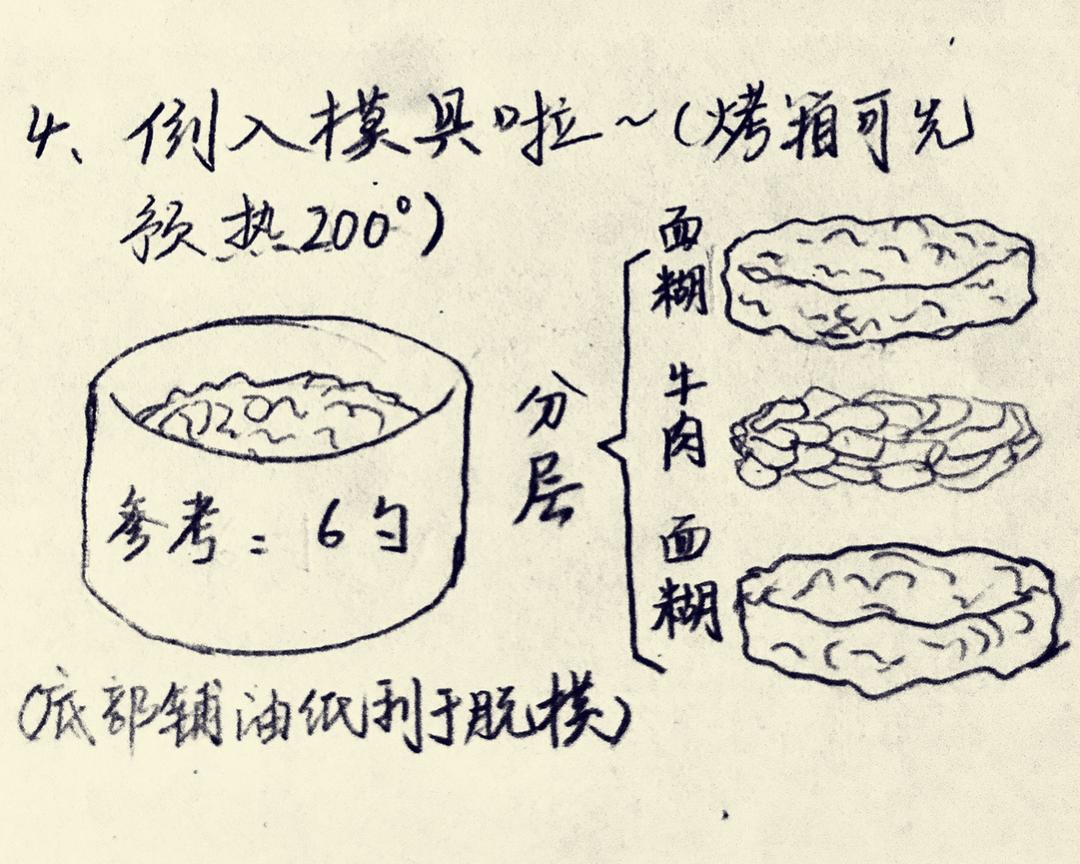 4、倒入模具啦~(烤箱可先
预热200°)
参考：6勺
分层
面糊
牛肉
面糊
(底部铺油纸利于脱模)